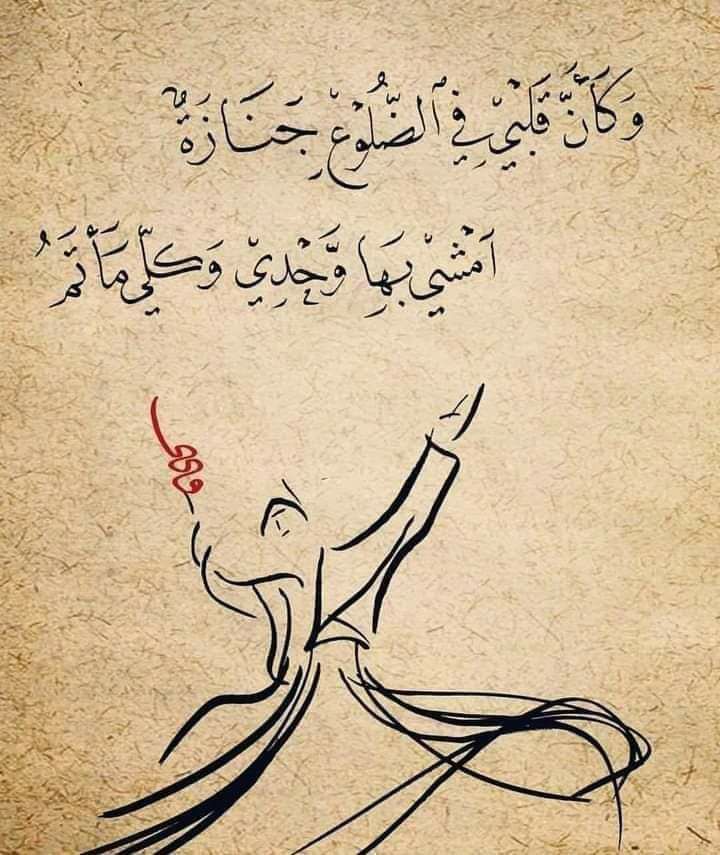 وَكَأَنَّ قَلْبِيْ فِي ٱلضُّلُوْعِ جَنَازَةٌ
اَمْشِيْ بِهَا وَّحْدِيْ وَكُلِّيْ مَأْتَمُ